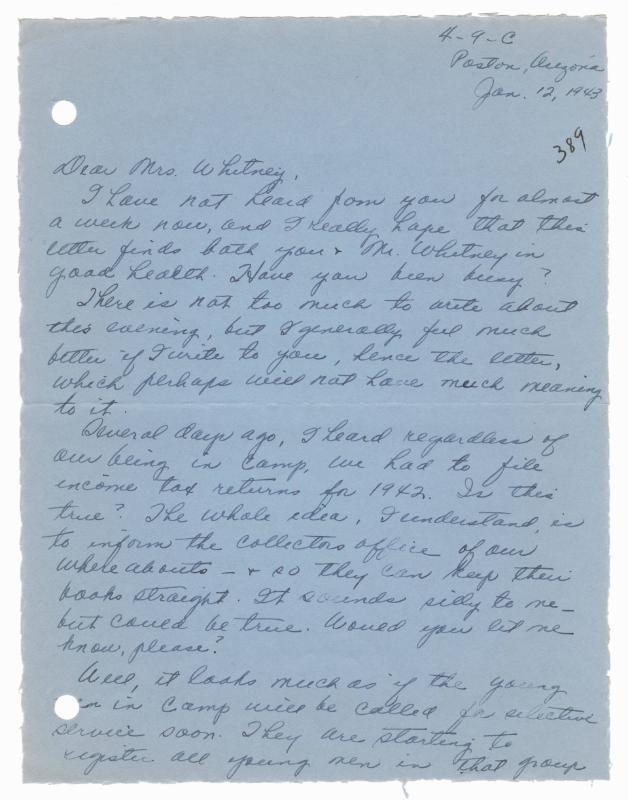 4-9-C
Poston, Arizona
Jan. 12, 1943
389
Dear Mrs. Whitney,
I have not heard from you for almost
a week now, and I really hope that this
letter finds both you + Mr. Whitney in
good health. Have you been busy?
There is not too much to write about
this evening, but I generally feel much
better if I write to you, hence the letter,
which perhaps will not have much meaning
to it.
Several days ago, I heard regardless of
our being in camp, we had to file
income tax returns for 1942. Is this
true? The whole idea, I understand, is
to inform the collectors office of our
whereabouts — + so they can keep their
books straight. It sounds silly to me —
but could be true. Would you let me
know, please?
Well, it looks much as if the young
in in camp will be called for selective
service soon. They are starting to
register all young men in that group